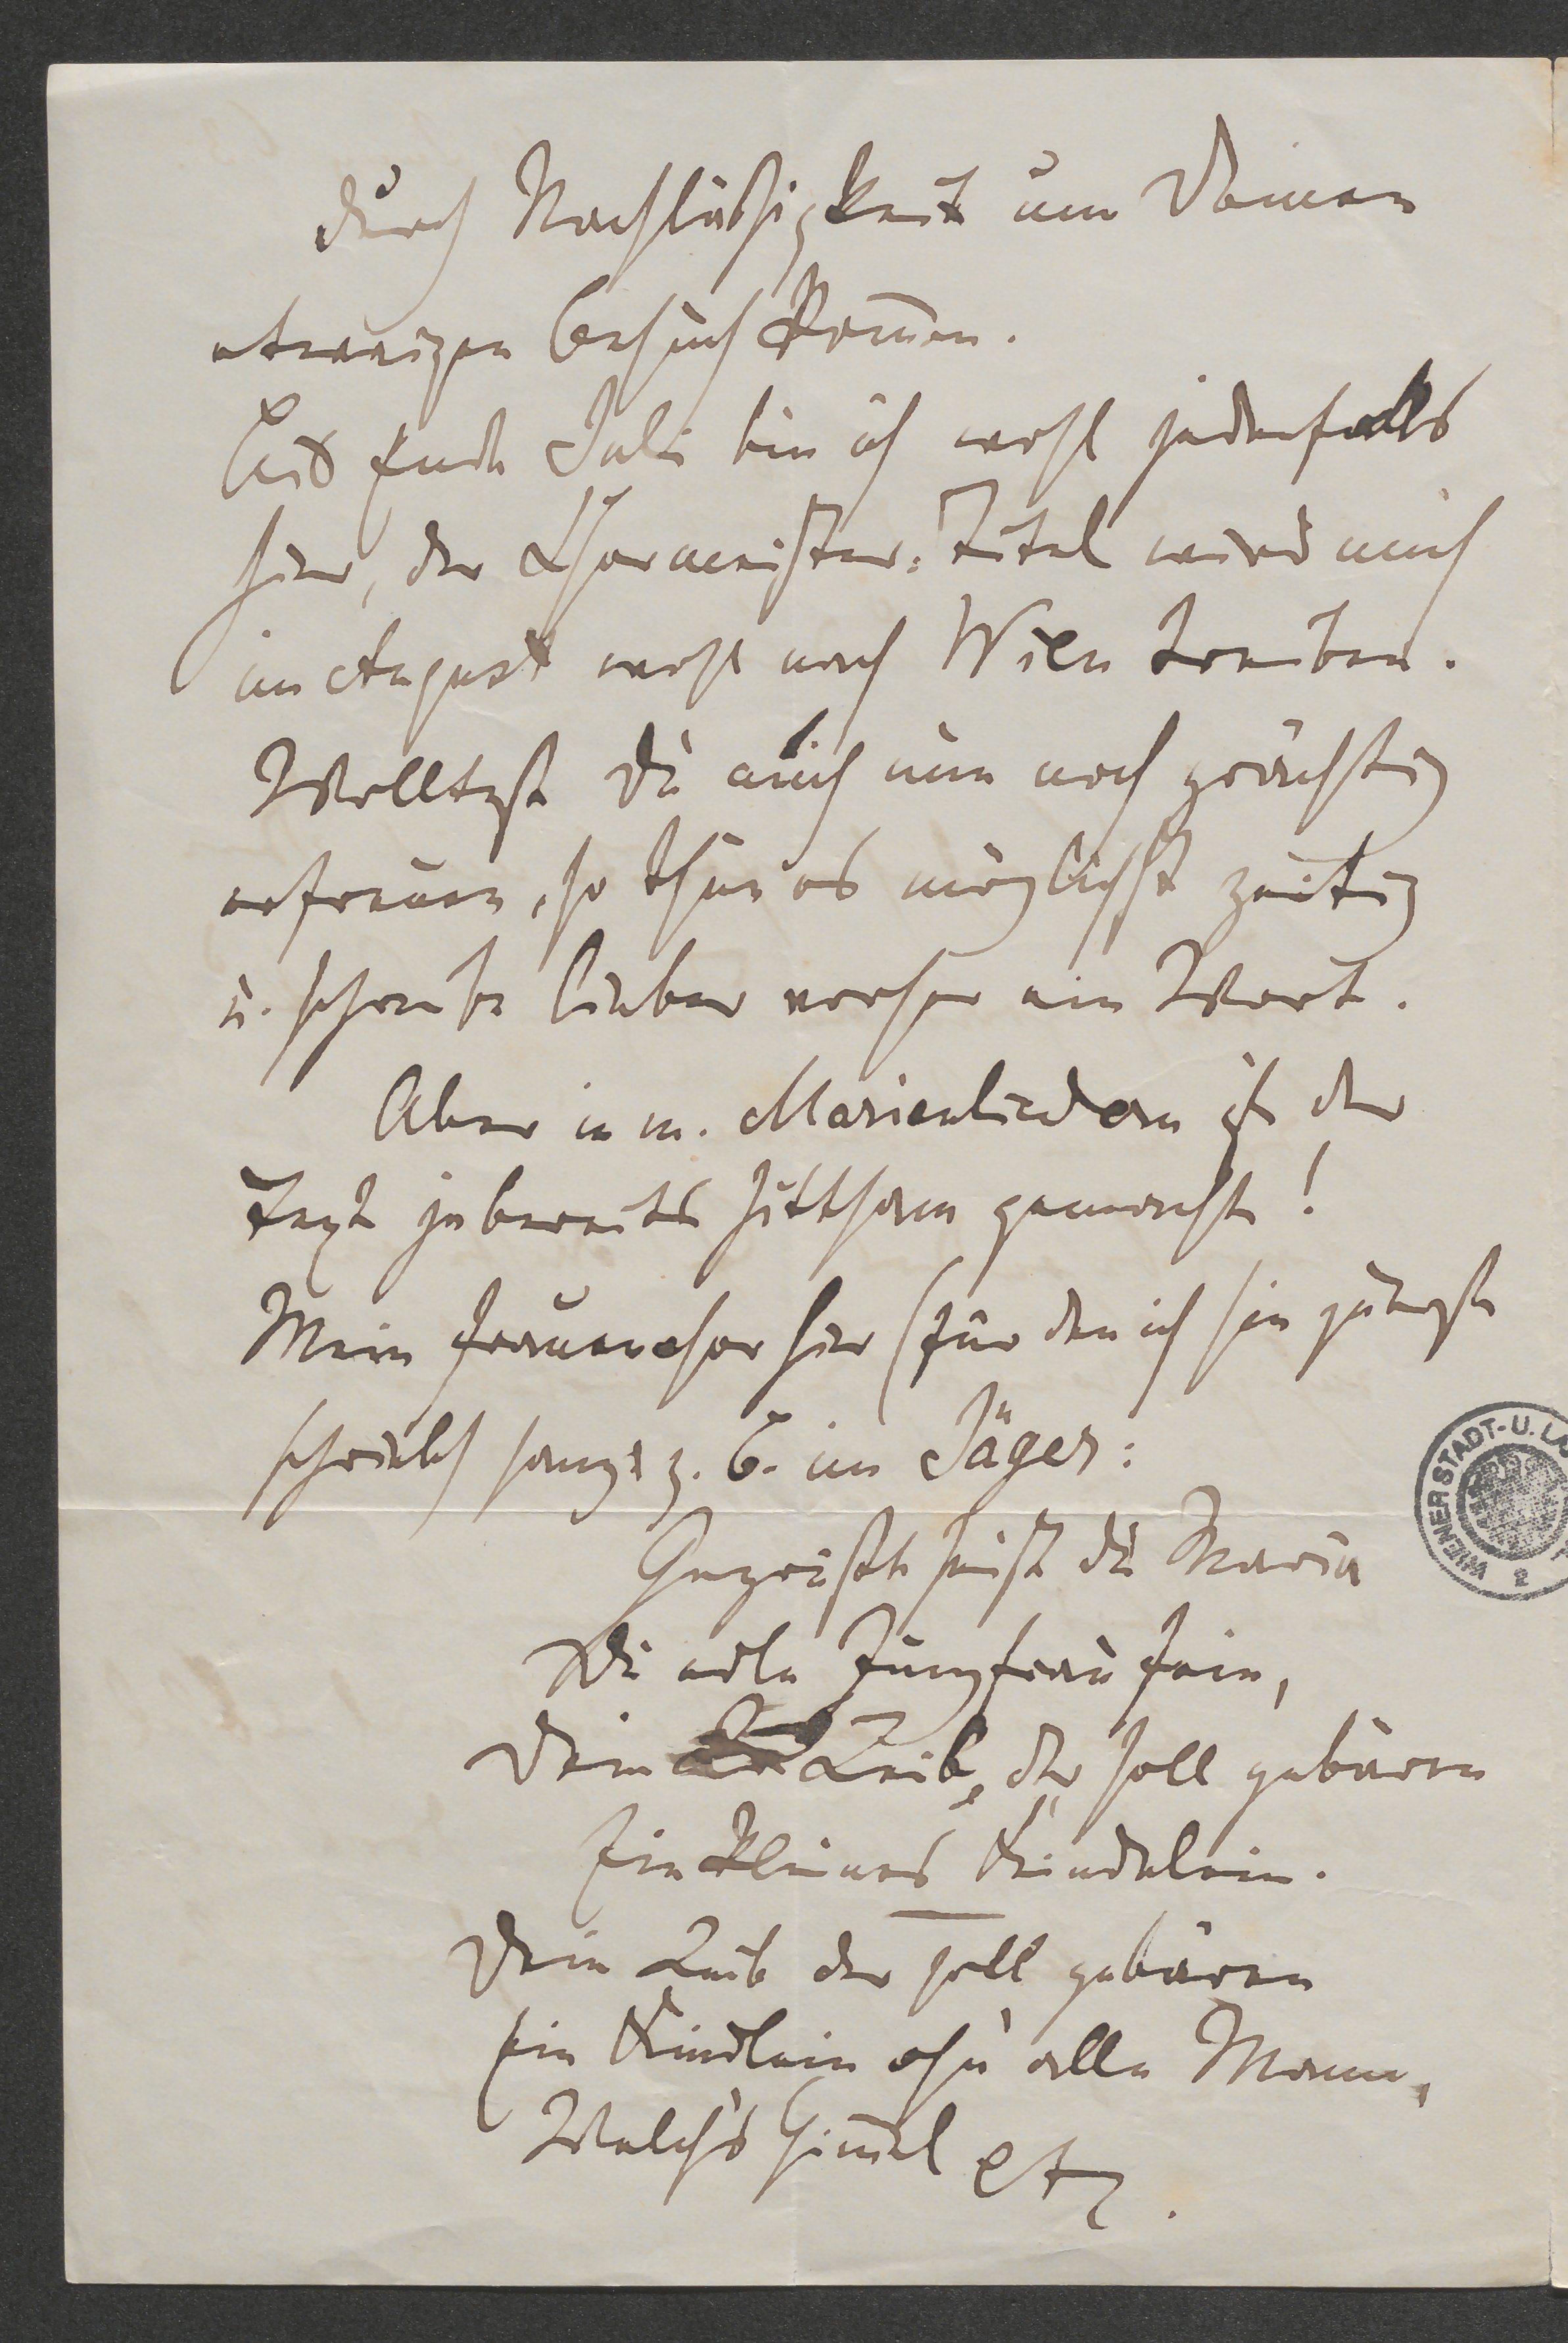 durch Nachläßigkeit um Deinen
etwaigen Besuch kom̄en.
Bis Ende Juli bin ich wohl jedenfalls
hier, der Chormeister-Titel wird mich
im August wohl nach Wien treiben.
Wolltest Du mich nun noch prächtig
erfreuen, so thue es möglichst zeitig
u. schreibe lieber vorher ein Wort.
Aber in m. Marienliedern ist der
Text ja bereits sittsam gemacht!
Mein Frauenchor hier (für den ich sie zuerst
schrieb) sang z. B. im Jäger:
Gegrüßt seist du Maria
Du edle Jungfrau fein,
Dein Leib, der soll gebären
Ein kleines Kindelein.
Dein Leib der soll gebären
Ein Kindlein ohn' alle Mann,
Welch's Him̄el etc.
WIENER STADT-U. LA